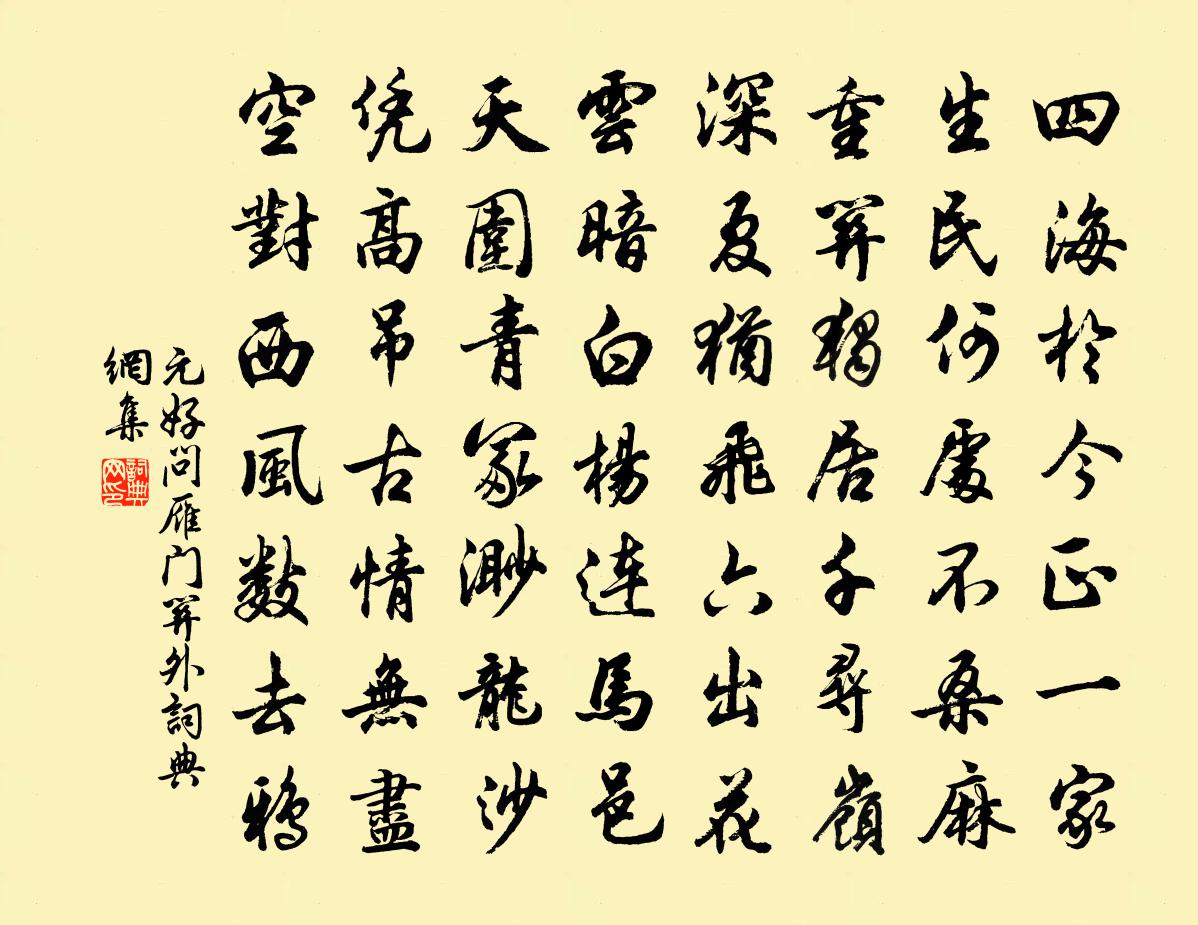 四海於今正一家
生民何處不桑麻
重關獨居千尋嶺
深夏猶飛六出花
雲暗白楊連馬邑
天圍青冢渺龍沙
凭高吊古情無盡
空對西風數去鴉
元好问雁门關外詞典
網集
詞典網印